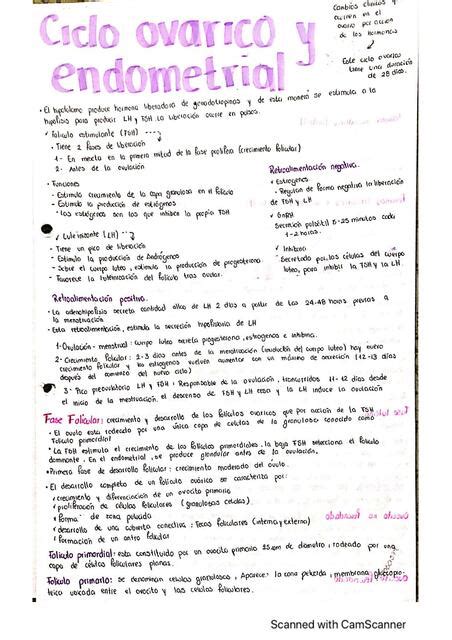 Cambios cíclicos y
ocurren en el
ovario por acción
de las hormonas
Ciclo ovarico y
endometrial
Este ciclo ovarico
tiene una duración
de 28 días.
• El hipotálamo produce hormona liberadora de gonadotropinas y de esta manera se estimula a la
hipófisis para producir LH y FSH. La liberación ocurre en pulsos.
✓ Folículo estimulante (FSH)
• Tiene 2 fases de liberación
1- En meseta en la primera mitad de la fase prolífera (crecimiento folicular)
2- Antes de la ovulación
• Funciones
- Estimula crecimiento de la capa granulosa en el folículo
- Estimula la producción de estrógenos
* los estrógenos son los que inhiben la propia FSH
Retroalimentación negativa.
✓ Estrógenos
- Regulan de forma negativa la liberación
de FSH y LH
✓ GnRH
Secreción pulsátil 5-25 minutos cada
1-2 horas.
✓ Inhibina
Secretado por las células del cuerpo
lúteo, para inhibir la FSH y la LH.
✓ Luteinizante (LH)
- Tiene un pico de liberación
- Estimula la producción de Andrógenos
- Sobre el cuerpo lúteo, estimula la producción de progesterona
- Favorece la luteinización del folículo tras ovular.
Retroalimentación positiva.
• La adenohipófisis secreta cantidad altas de LH 2 días a partir de las 24-48 horas previas a
la menstruación
• Esta retroalimentación, estimula la secreción hipofisaria de LH
1- Ovulación - menstrual: cuerpo lúteo secreta progesterona, estrógenos e inhibina.
2- Crecimiento folicular: 2-3 días antes de la menstruación (involución del cuerpo lúteo) hay nuevo
crecimiento folicular y los estrógenos vuelven aumentar con un máximo de secreción (12-13 días
después del comienzo del nuevo ciclo)
3- Pico preovulatorio LH y FSH: Responsable de la ovulación, transcurridos 11-12 días desde
el inicio de la menstruación, el descenso de FSH y LH cesa y la LH induce la ovulación
Fase Folicular: crecimiento y desarrollo de los folículos ovaricos que por acción de la FSH
• El óvulo esta rodeado por una única capa de células de la granulosa conocido como
Folículo primordial
* La FSH estimula el crecimiento de los folículos primordiales, la baja FSH selecciona el folículo
dominante. En el endometrial, se produce glandular antes de la ovulación.
• Primera fase de desarrollo folicular: crecimiento moderado del óvulo.
• El desarrollo completo de un folículo ovárico se caracteriza por:
✓ crecimiento y diferenciación de un ovocito primario
✓ proliferación de células foliculares (granulosas células)
✓ Forma de zona pelúcida
✓ desarrollo de una cubierta conectiva: Tecas foliculares (interna y externo)
✓ Formación de un antro folicular
Folículo primordial: esta constituido por un ovocito primario 25um de diametro, rodeado por una
capa de células foliculares planas.
Folículo primario: se denominan celulas granulosas, Aparece: la zona pelúcida, membrana glucopro-
teica ubicada entre el ovocito y las células foliculares.
Scanned with CamScanner